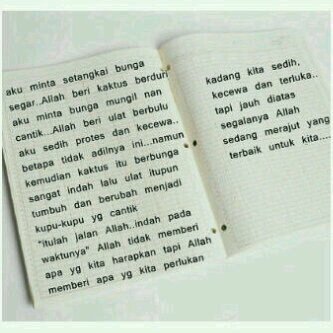 aku minta setangkai bunga
segar..Allah beri kaktus berduri
aku minta bunga mungil nan
cantik..Allah beri ulat berbulu
aku sedih protes dan kecewa..
betapa tidak adilnya ini...namun
kemudian kaktus itu berbunga
sangat indah lalu ulat itupun
tumbuh dan berubah menjadi
kupu-kupu yg cantik
"itulah jalan Allah..indah pada
waktunya" Allah tidak memberi
apa yg kita harapkan tapi Allah
memberi apa yg kita perlukan
kadang kita sedih,
kecewa dan terluka..
tapi jauh diatas
segalanya Allah
sedang merajut yang
terbaik untuk kita....